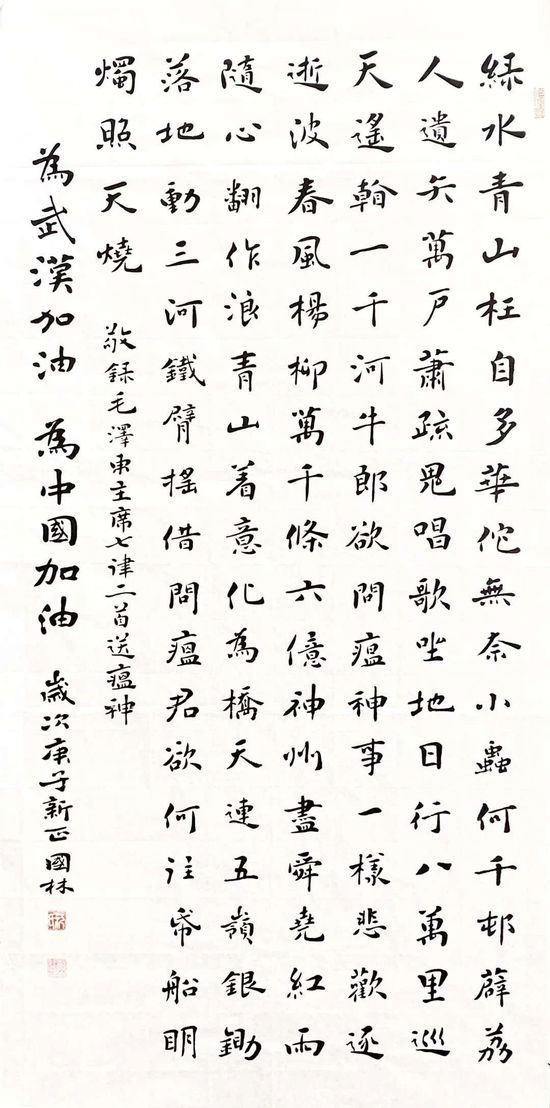 緑水青山枉自多華佗無奈小蟲何千邨薜荔
人遺矢萬户蕭疏鬼唱歌坐地日行八萬里巡
天遥看一千河牛郎欲問瘟神事一樣悲歡逐
逝波春風楊柳萬千條六億神州盡舜堯紅雨
隨心翻作浪青山着意化為橋天連五嶺銀鋤
落地動三河鐵臂搖借問瘟君欲何往帋船明
燭照天燒 敬録毛澤東主席七律二首送瘟神
為武漢加油 為中國加油 歲次庚子新正國林